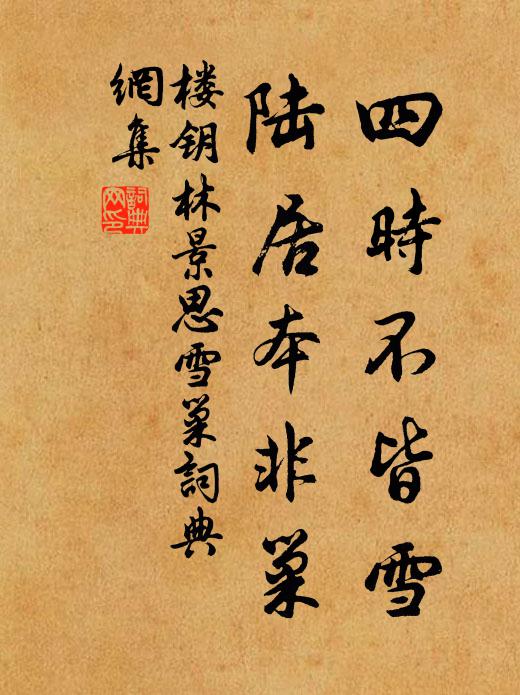 四時不皆雪
陆居本非巢
楼钥林景思雪巢詞典
網集
詞典
网印